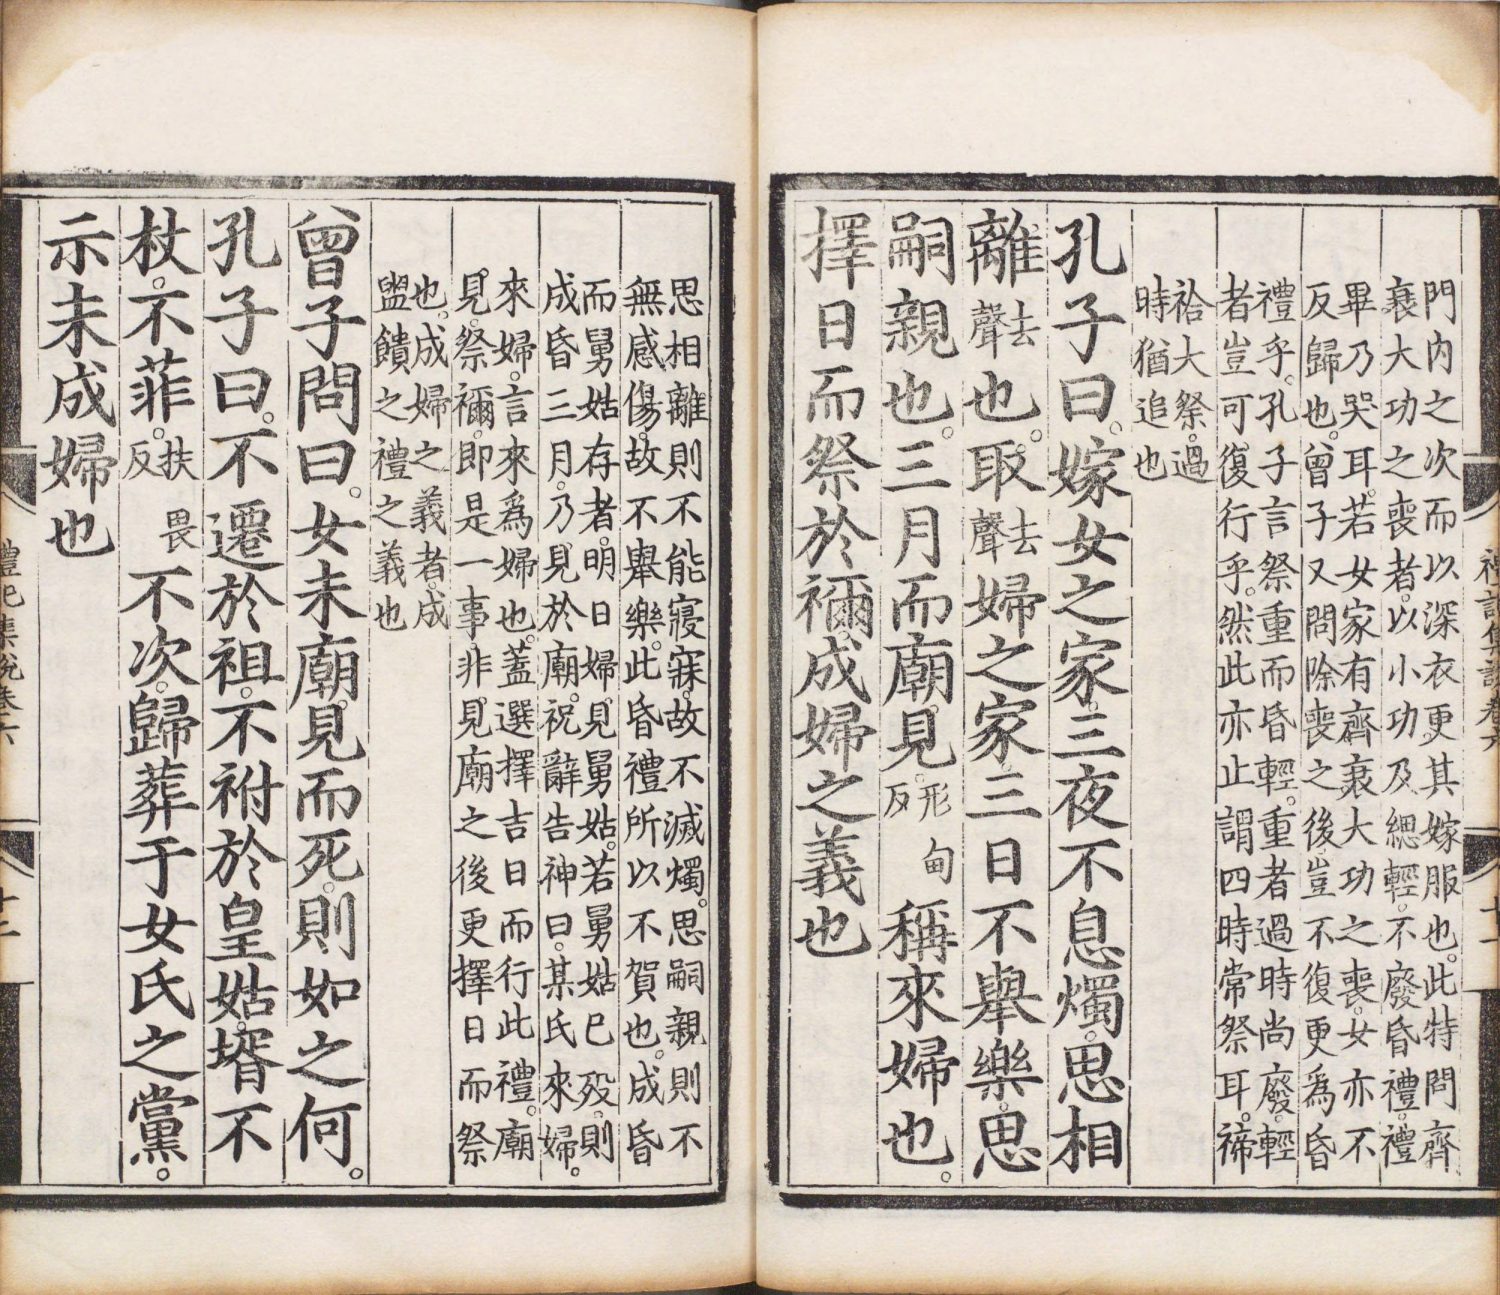 門内之次而以深衣更其嫁服也。此特問齊
衰大功之喪者。以小功及緦輕。不廢昏禮。禮
畢乃哭耳。若女家有齊衰大功之喪。女亦不
反歸也。曾子又問除喪之後豈不復更爲昏
禮乎。孔子言祭重而昏輕。重者過時尚廢。輕
者豈可復行乎。然此亦止謂四時常祭耳。禘
祫大祭。過
時猶追也
孔子曰。嫁女之家。三夜不息燭。思相
離去聲也。取去聲婦之家。三日不舉樂。思
嗣親也。三月而廟見形甸反稱來婦也。
擇日而祭於禰。成婦之義也
思相離則不能寢寐。故不滅燭。思嗣親則不
無感傷。故不舉樂。此昏禮所以不賀也。成昏
而舅姑存者。明日婦見舅姑。若舅姑已歿。則
成昏三月。乃見於廟。祝辭告神曰。某氏來婦。
來婦。言來爲婦也。蓋選擇吉日而行此禮。廟
見。祭禰。即是一事。非見廟之後更擇日而祭
也。成婦之義者。成
盥饋之禮之義也
曾子問曰。女未廟見而死。則如之何。
孔子曰。不遷於祖。不祔於皇姑。壻不
杖。不菲。扶畏反不次。歸葬于女氏之黨。
示未成婦也
禮記集說卷六
十一
禮記集說卷六
十二